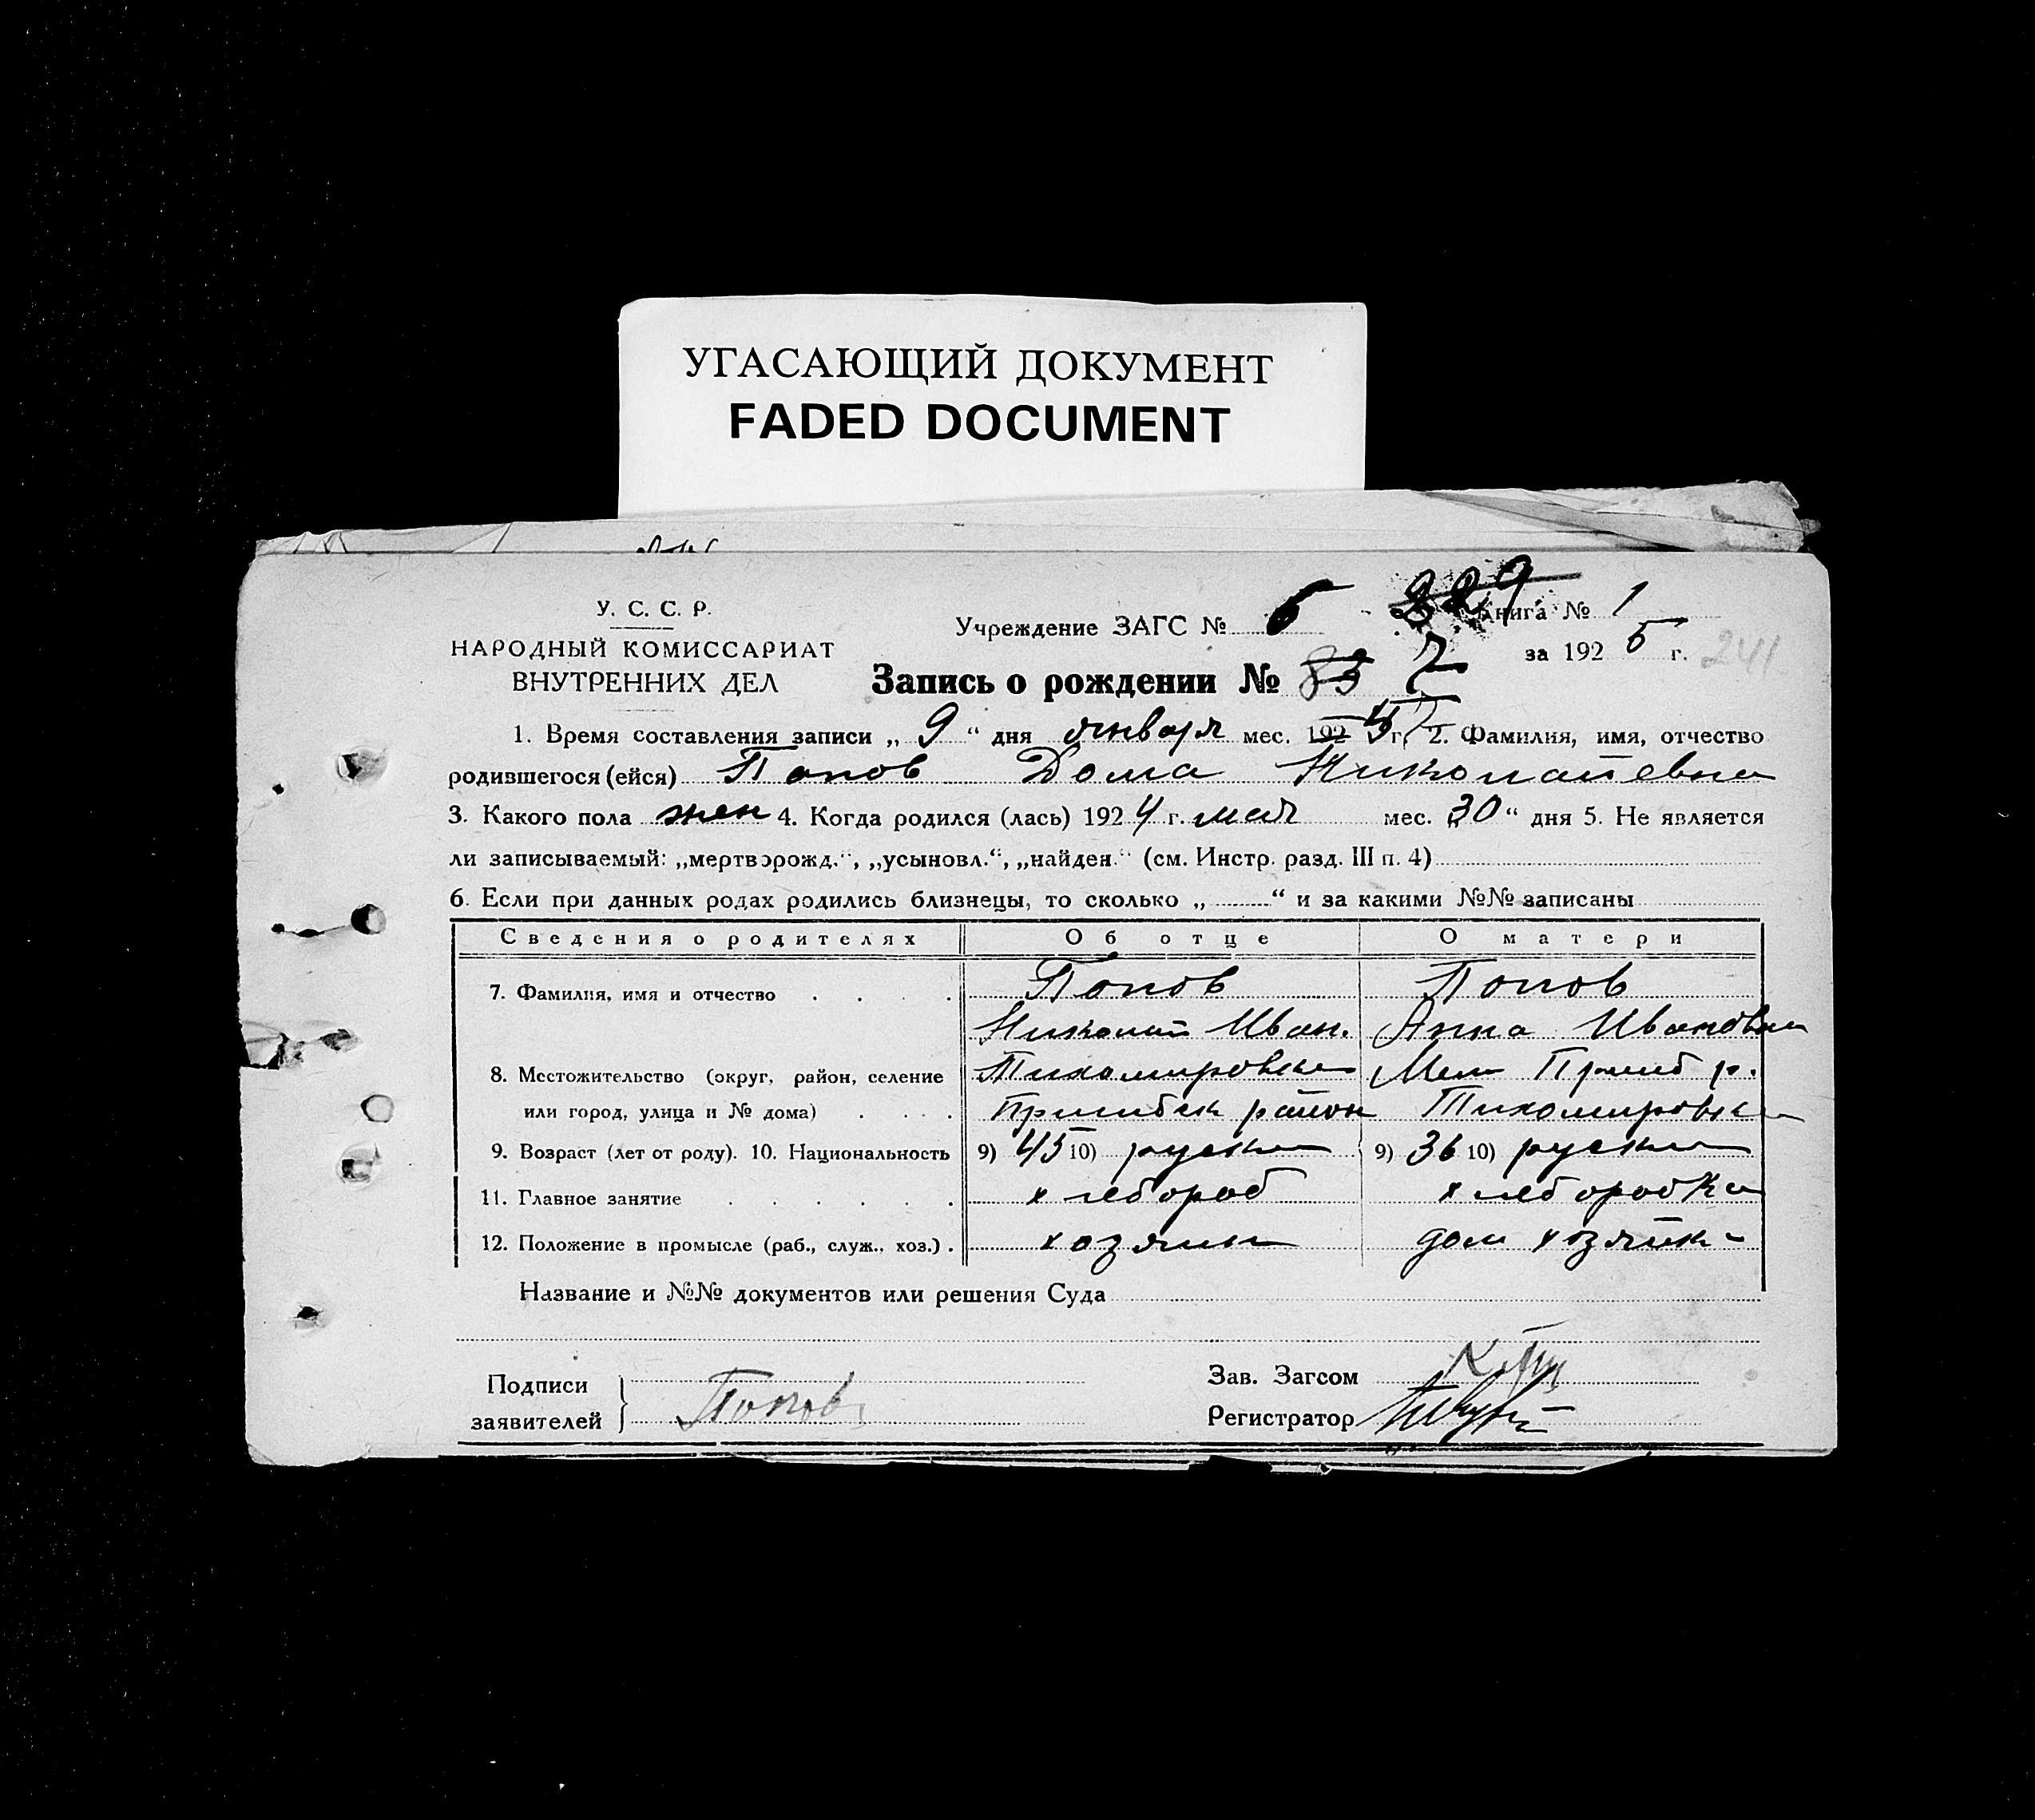 УГАСАЮЩИЙ ДОКУМЕНТ
FADED DOCUMENT
У. С. С. Р.
НАРОДНЫЙ КОМИССАРИАТ
ВНУТРЕННИХ ДЕЛ
Учреждение ЗАГС № 6 229 Книга № 1
за 1925 г. 241
Запись о рождении № 83 7
1. Время составления записи „ 9 “ дня января мес. 1925 г. 2. Фамилия, имя, отчество
родившегося (ейся) Попов Дома Николаевна
3. Какого пола жен 4. Когда родился (лась) 1924 г. мая мес. 30 “ дня 5. Не является
ли записываемый: „мертворожд.“, „усыновл.“, „найден.“ (см. Инстр. разд. III п. 4)
6. Если при данных родах родились близнецы, то сколько „ “ и за какими №№ записаны
Сведения о родителях Об отце О матери
7. Фамилия, имя и отчество Попов Попов
Николай Иван. Анна Ивановна
8. Местожительство (округ, район, селение Тихомировка Мел Пришб р.
или город, улица и № дома) Пришибск район Тихомировка
9. Возраст (лет от роду). 10. Национальность 9) 45 10) руски 9) 36 10) руски
11. Главное занятие хлебороб хлеборобка
12. Положение в промысле (раб., служ., хоз.) хозяин дом хозяйка
Название и №№ документов или решения Суда
Подписи
заявителей Попов
Зав. Загсом
Регистратор